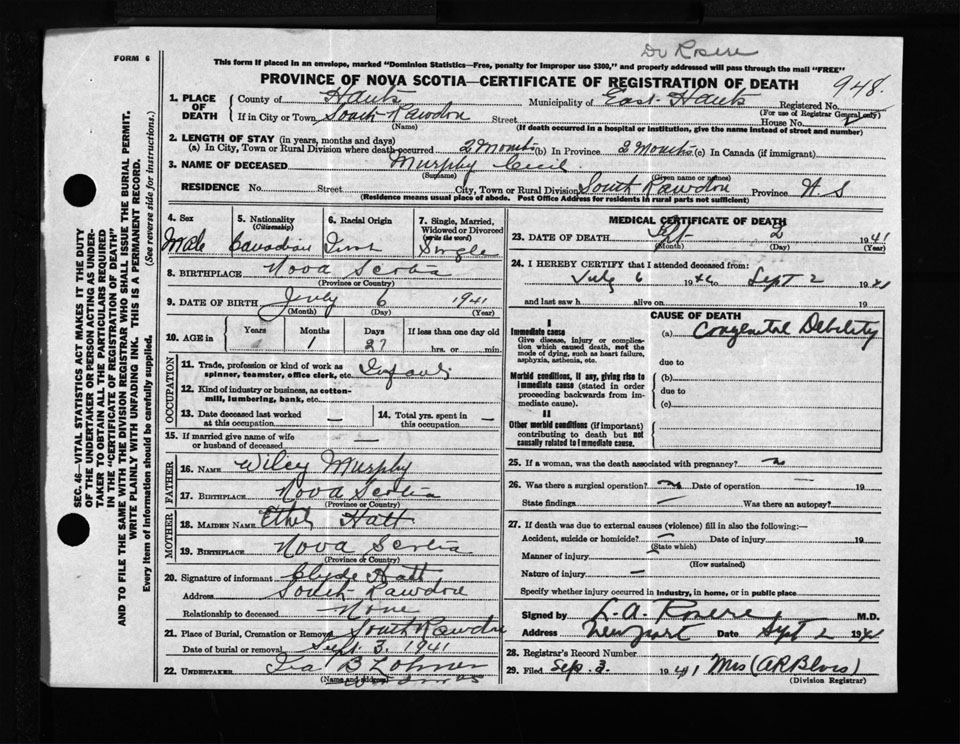 Dr Rosere
FORM 6
This form if placed in an envelope, marked "Dominion Statistics—Free, penalty for improper use $300," and properly addressed will pass through the mail "FREE"
PROVINCE OF NOVA SCOTIA—CERTIFICATE OF REGISTRATION OF DEATH
948
1. PLACE OF DEATH
County of Hants Municipality of East Hants Registered No.
(For use of Registrar General only)
If in City or Town South Rawdon Street House No.
(Name) (If death occurred in a hospital or institution, give the name instead of street and number)
2. LENGTH OF STAY (in years, months and days)
(a) In City, Town or Rural Division where death occurred 2 Months (b) In Province 2 Months (c) In Canada (if immigrant)
3. NAME OF DECEASED Murphy Cecil
(Surname) (Given name or names)
RESIDENCE No. Street City, Town or Rural Division South Rawdon Province N S
(Residence means usual place of abode. Post Office Address for residents in rural parts not sufficient)
4. Sex Male
5. Nationality (Citizenship) Canadian
6. Racial Origin
7. Single, Married, Widowed or Divorced (write the word) Single
8. BIRTHPLACE Nova Scotia
(Province or Country)
9. DATE OF BIRTH July 6 1941
(Month) (Day) (Year)
10. AGE in Years Months Days If less than one day old
1 27 hrs. or min.
OCCUPATION
11. Trade, profession or kind of work as spinner, teamster, office clerk, etc. Infant
12. Kind of industry or business, as cotton-mill, lumbering, bank, etc.
13. Date deceased last worked at this occupation —
14. Total yrs. spent in this occupation —
15. If married give name of wife or husband of deceased —
FATHER
16. NAME Wiley Murphy
17. BIRTHPLACE Nova Scotia
(Province or Country)
MOTHER
18. MAIDEN NAME Ethel Hatt
19. BIRTHPLACE Nova Scotia
(Province or Country)
20. Signature of informant Clyde Hatt
Address South Rawdon
Relationship to deceased None
21. Place of Burial, Cremation or Removal South Rawdon
Date of burial or removal Sept. 3. 1941
22. UNDERTAKER Ira B Lohnes
(Name and address)
MEDICAL CERTIFICATE OF DEATH
23. DATE OF DEATH Sept 2 1941
(Month) (Day) (Year)
24. I HEREBY CERTIFY that I attended deceased from:
July 6 19 to Sept 2 1941
and last saw h alive on 19
CAUSE OF DEATH
I
Immediate cause
Give disease, injury or complication which caused death, not the mode of dying, such as heart failure, asphyxia, asthenia, etc.
(a) Congenital Debility
due to
Morbid conditions, if any, giving rise to immediate cause (stated in order proceeding backwards from immediate cause).
(b)
due to
(c)
II
Other morbid conditions (if important) contributing to death but not causally related to immediate cause.
25. If a woman, was the death associated with pregnancy?
26. Was there a surgical operation? Date of operation — 19
State findings — Was there an autopsy?
27. If death was due to external causes (violence) fill in also the following:—
Accident, suicide or homicide? — Date of injury 19
(State which)
Manner of injury —
(How sustained)
Nature of injury —
Specify whether injury occurred in industry, in home, or in public place
Signed by L. A. Rosere M.D.
Address Newport Date Sept 2 1941
28. Registrar's Record Number
29. Filed Sep. 3. 1941 Mrs (A R Blois)
(Division Registrar)
SEC. 46—VITAL STATISTICS ACT MAKES IT THE DUTY
OF THE UNDERTAKER OR PERSON ACTING AS UNDER-
TAKER TO OBTAIN ALL THE PARTICULARS REQUIRED
IN THE "CERTIFICATE OF REGISTRATION OF DEATH"
AND TO FILE THE SAME WITH THE DIVISION REGISTRAR WHO SHALL ISSUE THE BURIAL PERMIT.
WRITE PLAINLY WITH UNFADING INK. THIS IS A PERMANENT RECORD.
Every item of information should be carefully supplied. (See reverse side for instructions.)